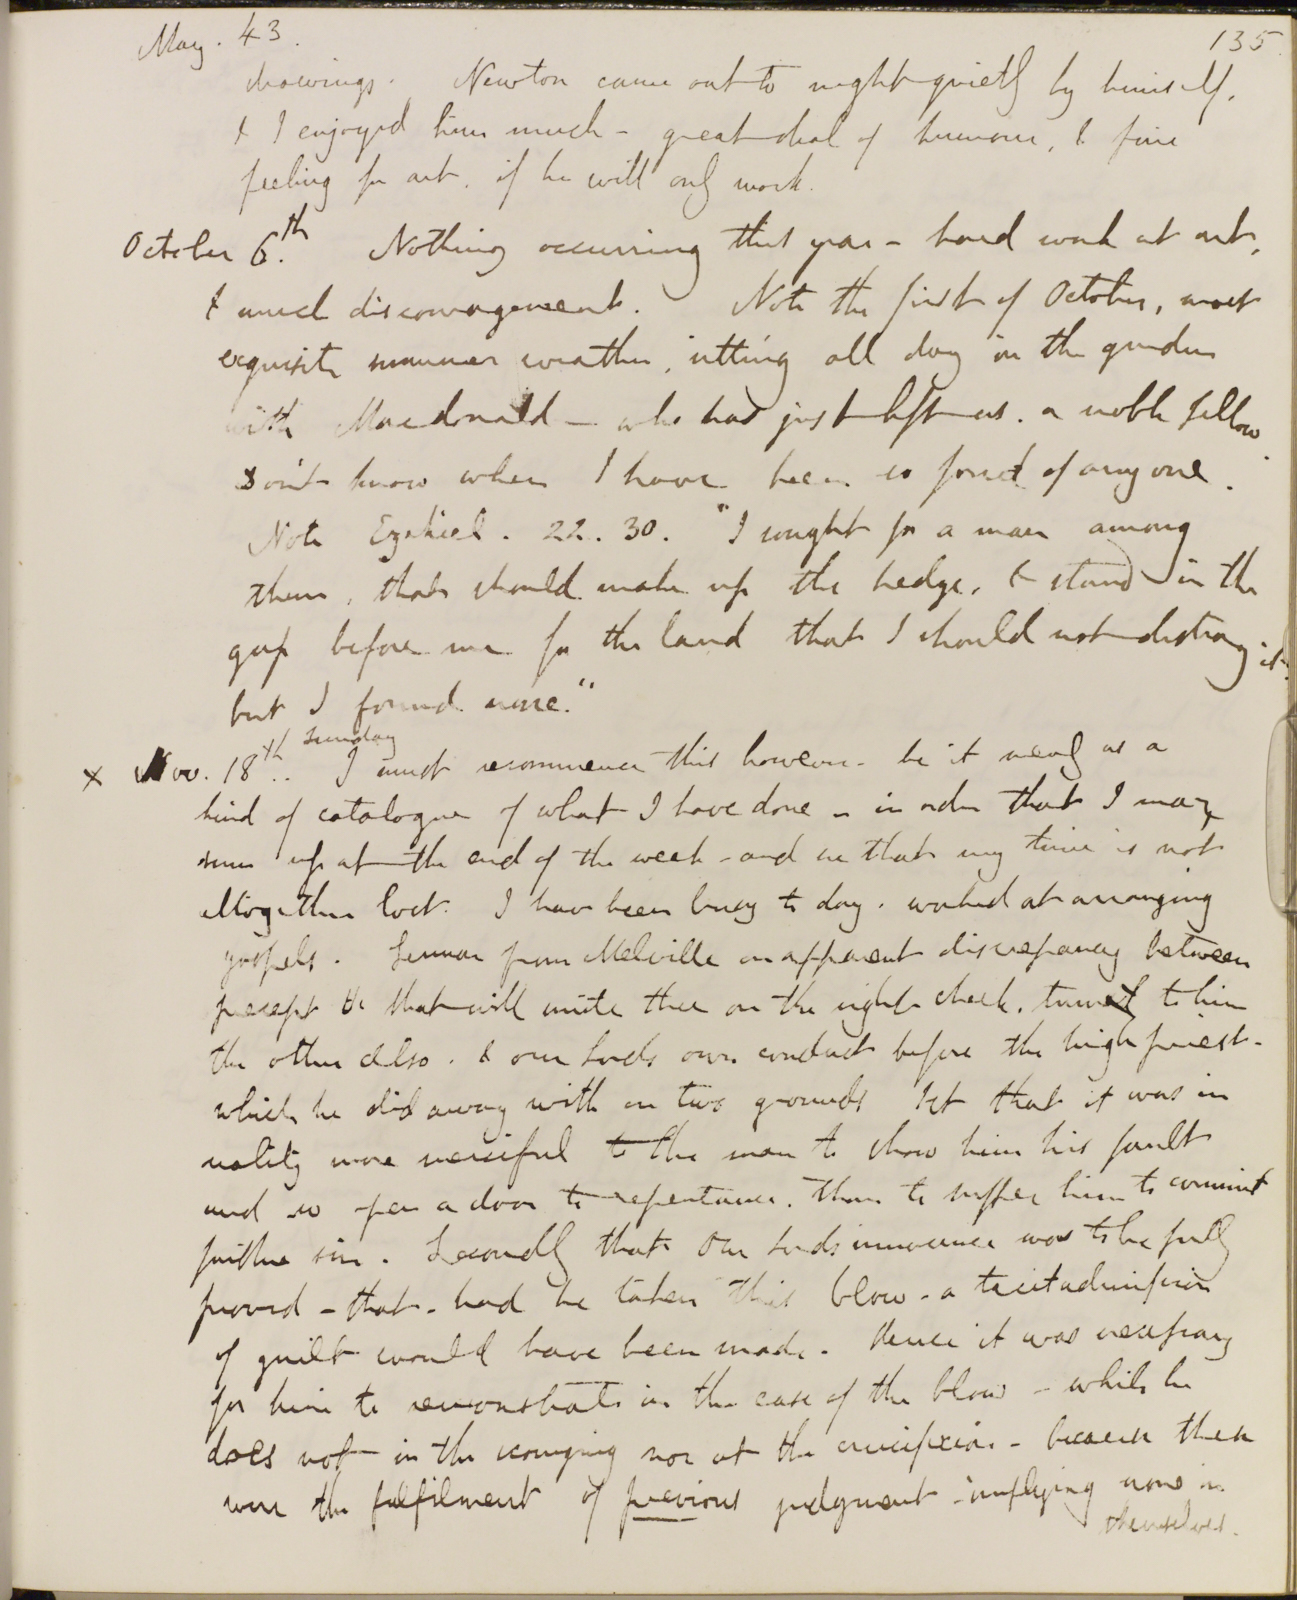 May. 43.
135
drawings. Newton came out to night quietly by himself,
& I enjoyed him much - great deal of humour, & fine
feeling for art, if he will only work.
October 6th. Nothing occurring this year - hard work at art,
& much discouragement. Note the first of October, most
exquisite summer weather, sitting all day in the garden
with Macdonald - who has just left us. a noble fellow
don't know when I have been so fond of any one.
Note Ezekiel. 22. 30. "I sought for a man among
them, that should make up the hedge, & stand in the
gap before me for the land that I should not destroy it.
but I found none."
Sunday
x Nov. 18th.. I must recommence this however - be it merely as a
kind of catalogue of what I have done - in order that I may
sum up at the end of the week - and see that my time is not
altogether lost. I have been busy to day. worked at arranging
gospels. Sermon from Melville on apparent discrepancy between
precept He that will smite thee on the right cheek, turn to him
the other also. & our Lords own conduct before the high priest -
which he did away with on two grounds 1st that it was in
reality more merciful to the man to show him his fault
and so open a door to repentance. Than to suffer him to commit
further sin. Secondly that Our Lords innocence was to be fully
proved - that - had he taken this blow - a tacit admission
of guilt would have been made. Hence it was necessary
for him to remonstrate in the case of the blow - while he
does not in the scourging nor at the crucifixion - because these
were the fulfilment of previous judgment - implying none in
themselves.